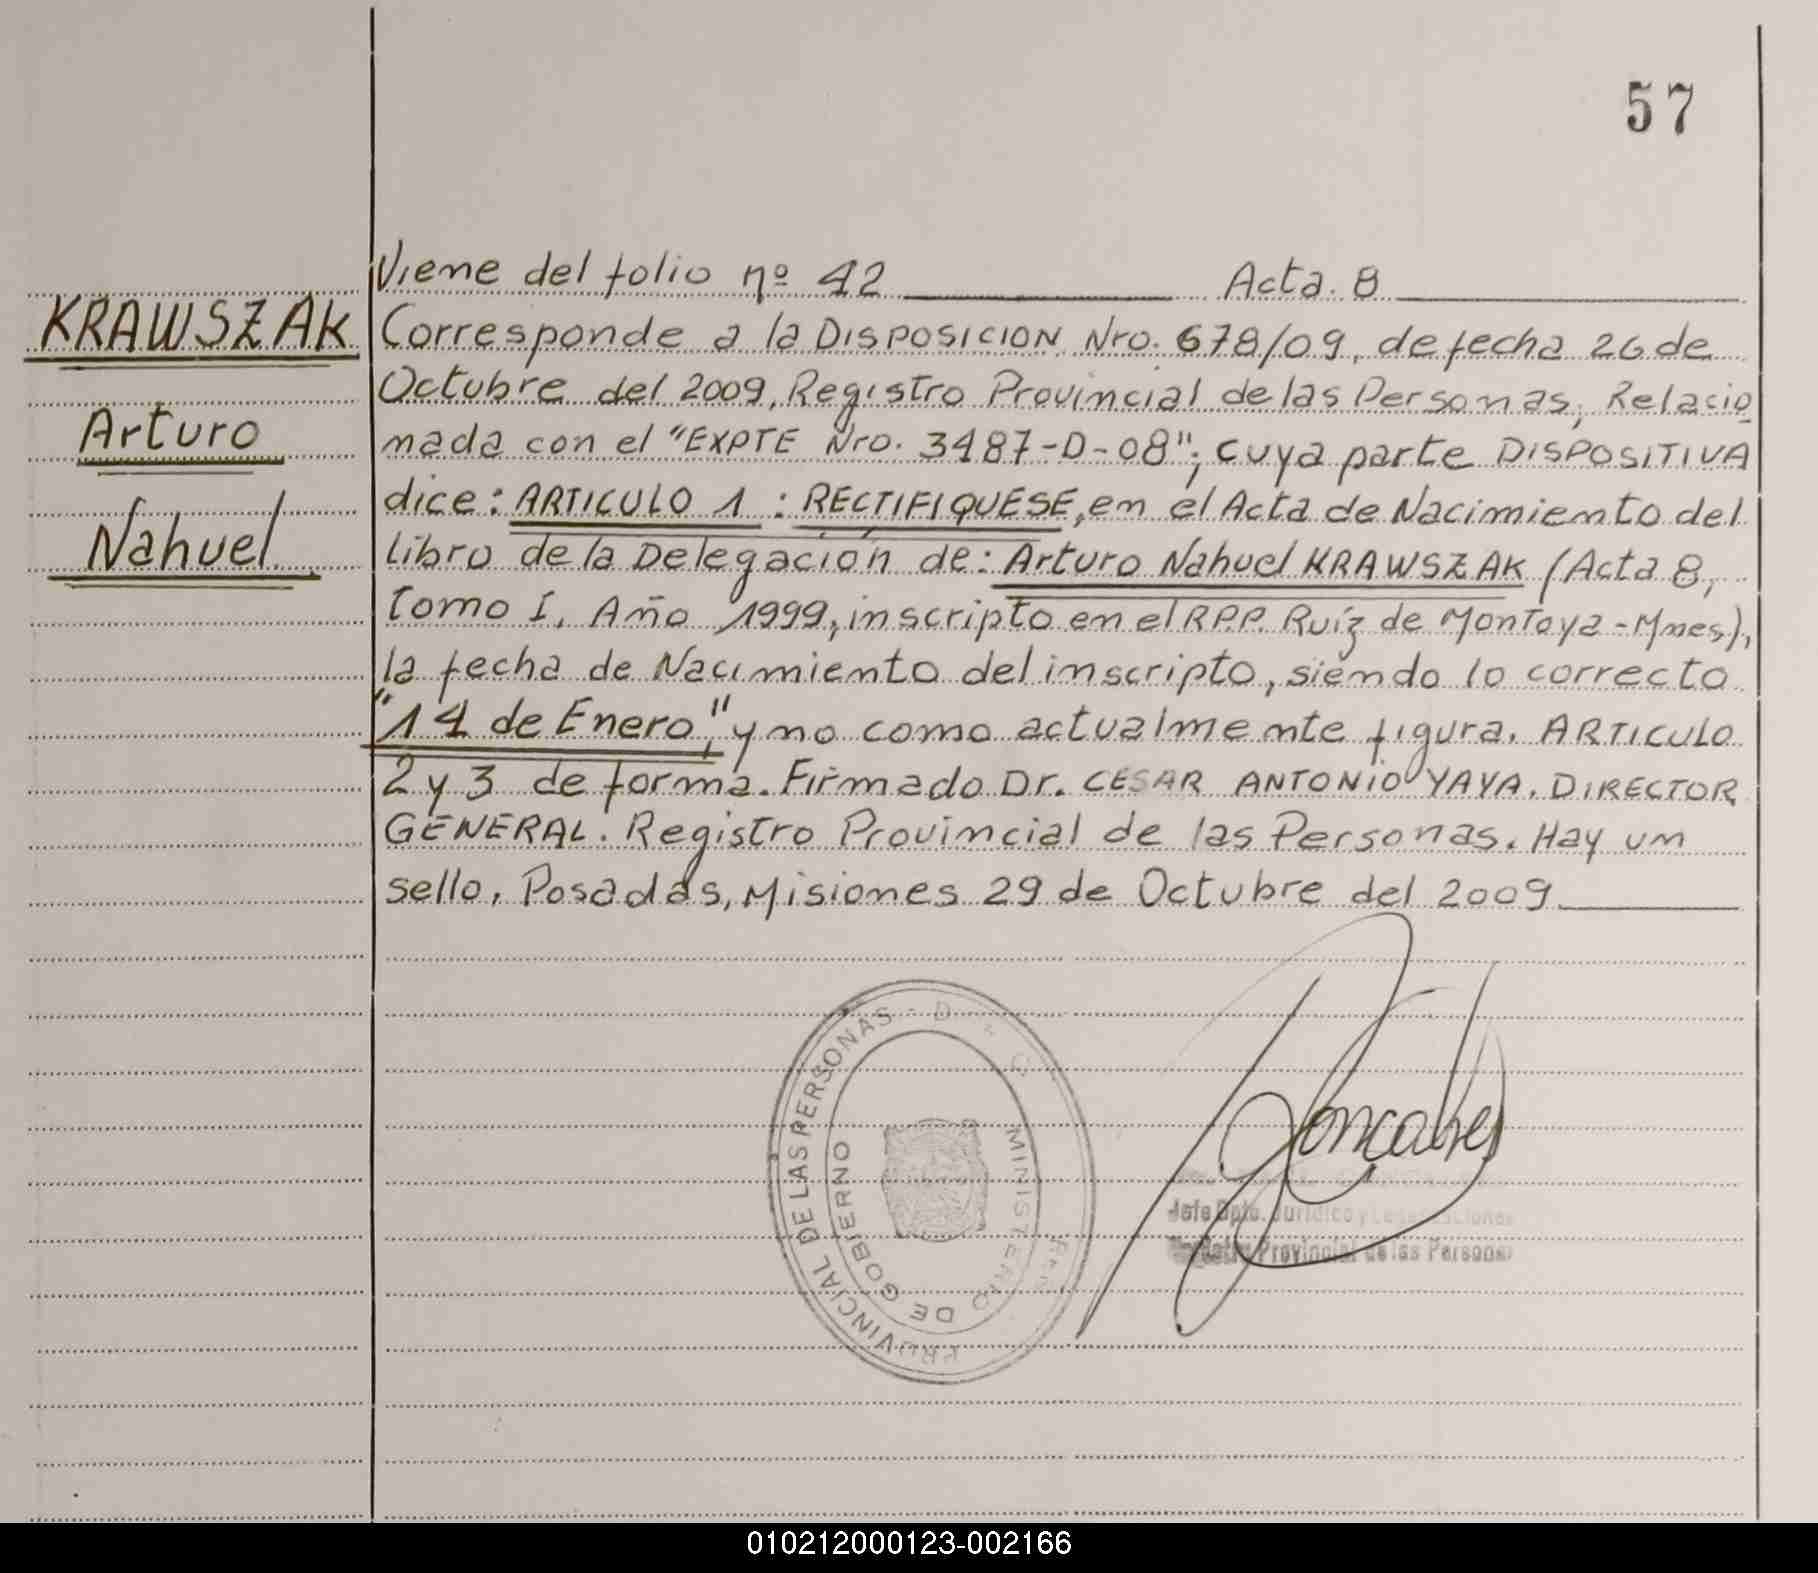 57
Viene del folio nº 42 Acta. 8
KRAWSZAK
Arturo
Nahuel
Corresponde a la DISPOSICION Nro. 678/09, de fecha 26 de
Octubre del 2009, Registro Provincial de las Personas, Relacio
nada con el "EXPTE Nro. 3487-D-08"; cuya parte DISPOSITIVA
dice: ARTICULO 1 : RECTIFIQUESE, en el Acta de Nacimiento del
libro de la Delegación de: Arturo Nahuel KRAWSZAK (Acta 8,
Tomo I, Año 1999, inscripto en el R.P.P. Ruíz de Montoya-Mnes),
la fecha de Nacimiento del inscripto, siendo lo correcto
"14 de Enero," y no como actualmente figura. ARTICULO
2 y 3 de forma. Firmado Dr. CESAR ANTONIO YAYA. DIRECTOR
GENERAL. Registro Provincial de las Personas. Hay un
sello. Posadas, Misiones 29 de Octubre del 2009
PROVINCIAL DE LAS PERSONAS - D
MINISTERIO DE GOBIERNO
Jefe Dpto. Jurídico y
Provincial de las Personas
010212000123-002166